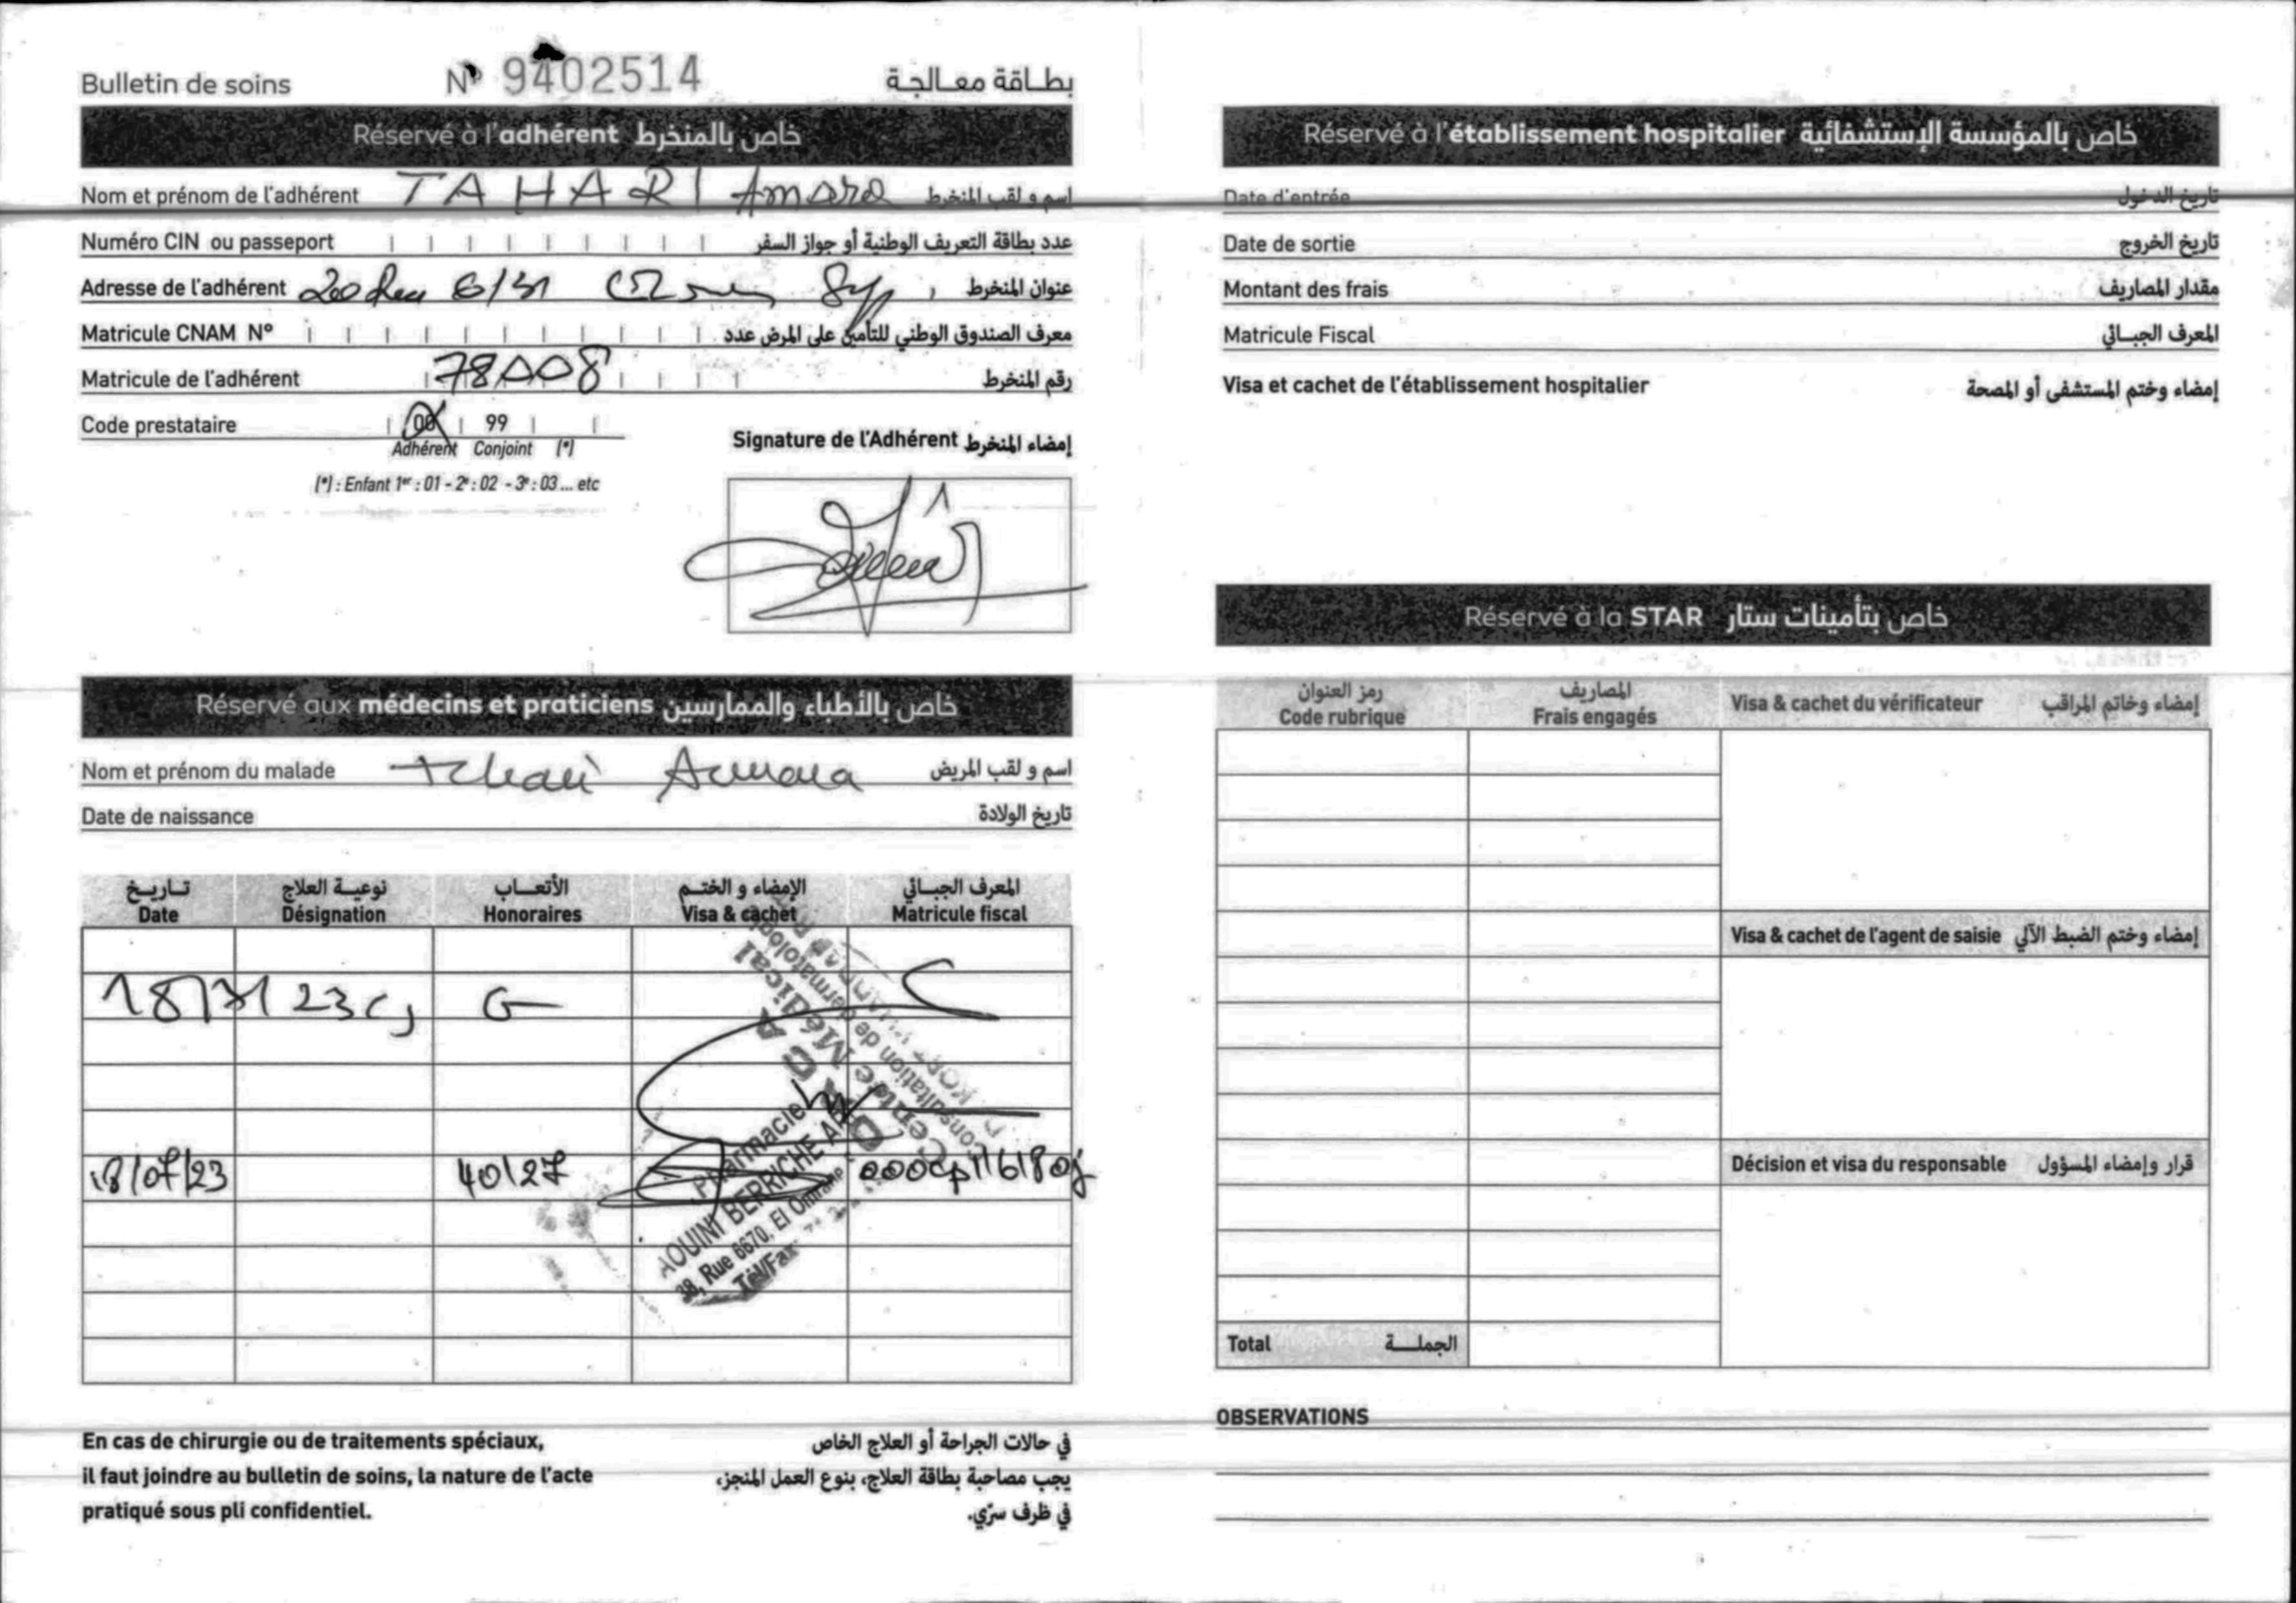 Bulletin de soins N° 9402514 بطاقة معالجة
Réservé à l'adhérent خاص بالمنخرط
Nom et prénom de l'adhérent TAHARI Amara اسم و لقب المنخرط
Numéro CIN ou passeport عدد بطاقة التعريف الوطنية أو جواز السفر
Adresse de l'adhérent عنوان المنخرط
Matricule CNAM N° معرف الصندوق الوطني للتأمين على المرض عدد
Matricule de l'adhérent 78008 رقم المنخرط
Code prestataire 00 99
Adhérent Conjoint (*)
(*) : Enfant 1er : 01 - 2e : 02 - 3e : 03 ... etc
Signature de l'Adhérent إمضاء المنخرط
Réservé aux médecins et praticiens خاص بالأطباء والممارسين
Nom et prénom du malade Amara اسم و لقب المريض
Date de naissance تاريخ الولادة
تاريخ نوعية العلاج الأتعاب الإمضاء و الختم المعرف الجبائي
Date Désignation Honoraires Visa & cachet Matricule fiscal
18/7/23 G
Centre Médical
Consultation de dermatologie
18/07/23 40127
Pharmacie
AOUINI BERRICHE
38, Rue 6670, El Omrane
Tél/Fax
En cas de chirurgie ou de traitements spéciaux,
il faut joindre au bulletin de soins, la nature de l'acte
pratiqué sous pli confidentiel.
في حالات الجراحة أو العلاج الخاص
يجب مصاحبة بطاقة العلاج، بنوع العمل المنجز،
في ظرف سرّي.
Réservé à l'établissement hospitalier خاص بالمؤسسة الإستشفائية
Date d'entrée تاريخ الدخول
Date de sortie تاريخ الخروج
Montant des frais مقدار المصاريف
Matricule Fiscal المعرف الجبائي
Visa et cachet de l'établissement hospitalier إمضاء وختم المستشفى أو المصحة
Réservé à la STAR خاص بتأمينات ستار
رمز العنوان المصاريف
Code rubrique Frais engagés
Visa & cachet du vérificateur إمضاء وخاتم المراقب
Visa & cachet de l'agent de saisie إمضاء وختم الضبط الآلي
Décision et visa du responsable قرار وإمضاء المسؤول
Total الجملة
OBSERVATIONS